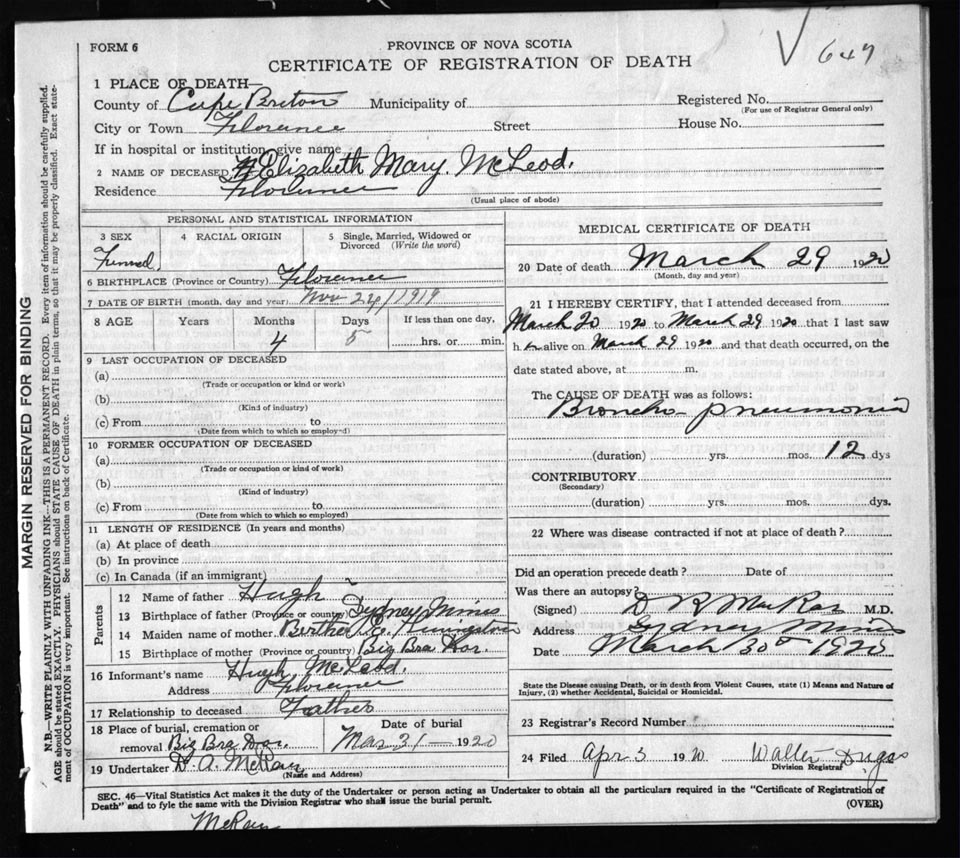 647
FORM 6
PROVINCE OF NOVA SCOTIA
CERTIFICATE OF REGISTRATION OF DEATH
MARGIN RESERVED FOR BINDING
N.B.—WRITE PLAINLY WITH UNFADING INK—THIS IS A PERMANENT RECORD. Every item of information should be carefully supplied.
AGE should be stated EXACTLY. PHYSICIANS should STATE CAUSE OF DEATH in plain terms, so that it may be properly classified. Exact state-
ment of OCCUPATION is very important. See instructions on back of Certificate.
1 PLACE OF DEATH—
County of Cape Breton Municipality of Registered No.
(For use of Registrar General only)
City or Town Florence Street House No.
If in hospital or institution, give name
2 NAME OF DECEASED Elizabeth Mary. McLeod.
Residence Florence
(Usual place of abode)
PERSONAL AND STATISTICAL INFORMATION
3 SEX 4 RACIAL ORIGIN 5 Single, Married, Widowed or Divorced (Write the word)
6 BIRTHPLACE (Province or Country) Florence
7 DATE OF BIRTH (month, day and year) Nov 24/1919
8 AGE Years Months Days If less than one day,
4 5 hrs. or min.
9 LAST OCCUPATION OF DECEASED
(a)
(Trade or occupation or kind or work)
(b)
(Kind of industry)
(c) From to
(Date from which to which so employ-d)
10 FORMER OCCUPATION OF DECEASED
(a)
(Trade or occupation or kind of work)
(b)
(Kind of industry)
(c) From to
(Date from which to which so employed)
11 LENGTH OF RESIDENCE (In years and months)
(a) At place of death
(b) In province
(c) In Canada (if an immigrant)
Parents
12 Name of father Hugh
13 Birthplace of father (Province or country) Sydney Mines
14 Maiden name of mother Livingstone
15 Birthplace of mother (Province or country) Big Bras Dor.
16 Informant's name Hugh McLeod.
Address Florence
17 Relationship to deceased Father
18 Place of burial, cremation or removal Big Bras Dor. Date of burial Mar 31 1920
19 Undertaker D. A. McRae
(Name and Address)
MEDICAL CERTIFICATE OF DEATH
20 Date of death March 29 1920
(Month, day and year)
21 I HEREBY CERTIFY, that I attended deceased from
March 20 1920 to March 29 1920 that I last saw
h alive on March 29 1920 and that death occurred, on the
date stated above, at m.
The CAUSE OF DEATH was as follows:
Broncho pneumonia
(duration) yrs. mos. 12 dys
CONTRIBUTORY
(Secondary)
(duration) yrs. mos. dys.
22 Where was disease contracted if not at place of death?
Did an operation precede death? Date of
Was there an autopsy?
(Signed) D R MacRae M.D.
Address Sydney Mines
Date March 30 1920
State the Disease causing Death, or in death from Violent Causes, state (1) Means and Nature of
Injury, (2) whether Accidental, Suicidal or Homicidal.
23 Registrar's Record Number
24 Filed Apr 3 1920 Walter Dugas
Division Registrar
SEC. 46—Vital Statistics Act makes it the duty of the Undertaker or person acting as Undertaker to obtain all the particulars required in the "Certificate of Registration of
Death" and to fyle the same with the Division Registrar who shall issue the burial permit.
(OVER)
McRae